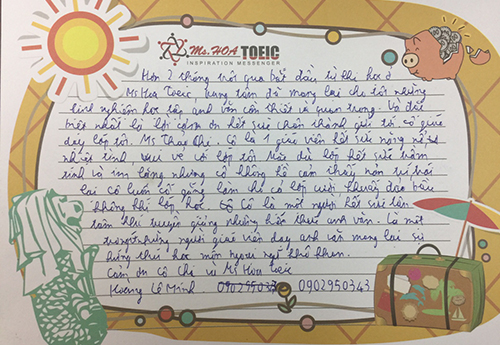 Ms. HOA TOEIC
INSPIRATION MESSENGER
Hơn 2 tháng trôi qua bắt đầu từ khi học ở
Ms Hoa Toeic, trung tâm đã mang lại cho tôi những
kinh nghiệm học tập, anh văn cần thiết và quan trọng. Và đặc
biệt nhất là lời cảm ơn hết sức chân thành gửi tới cô giáo
dạy lớp tôi. Ms Thảo Chi. Cô là 1 giáo viên hết sức năng nổ và
nhiệt tình, vui vẻ với lớp tôi. Mặc dù lớp hết sức trầm
tính và im lặng nhưng cô không hề cảm thấy nản mà trái
lại cô luôn cố gắng làm cho cả lớp cười khuấy đảo bầu
không khí lớp học. Cô là một người hết sức tận
tâm khi truyền giảng những kiến thức anh văn. Là một
trong những người giáo viên dạy anh văn mang lại sự
hứng thú học môn ngoại ngữ khó khăn.
Cảm ơn cô Chi và Ms Hoa Toeic
Hoàng Lê Minh 0902950343